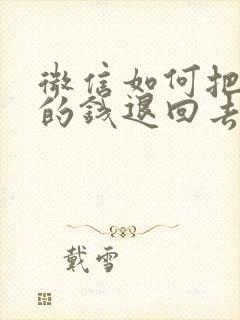 微信如何把
的钱退回去
戴雪